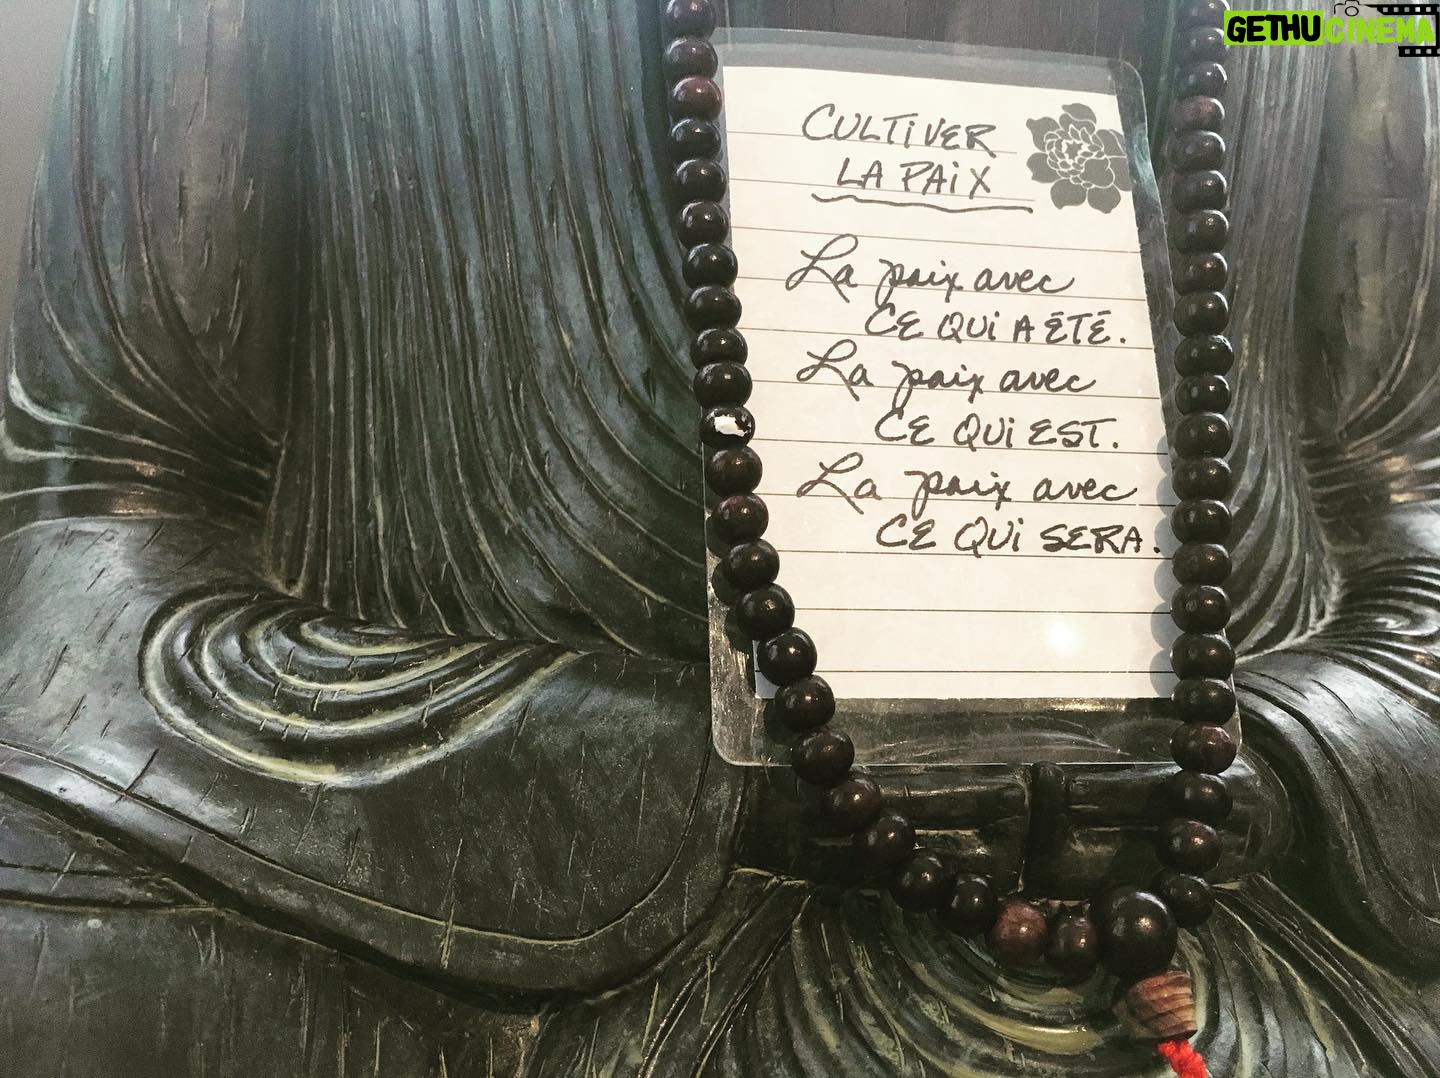 GETHUCINEMA
CULTIVER
LA PAIX
La paix avec
CE QUI A ÉTÉ.
La paix avec
CE QUI EST.
La paix avec
CE QUI SERA.